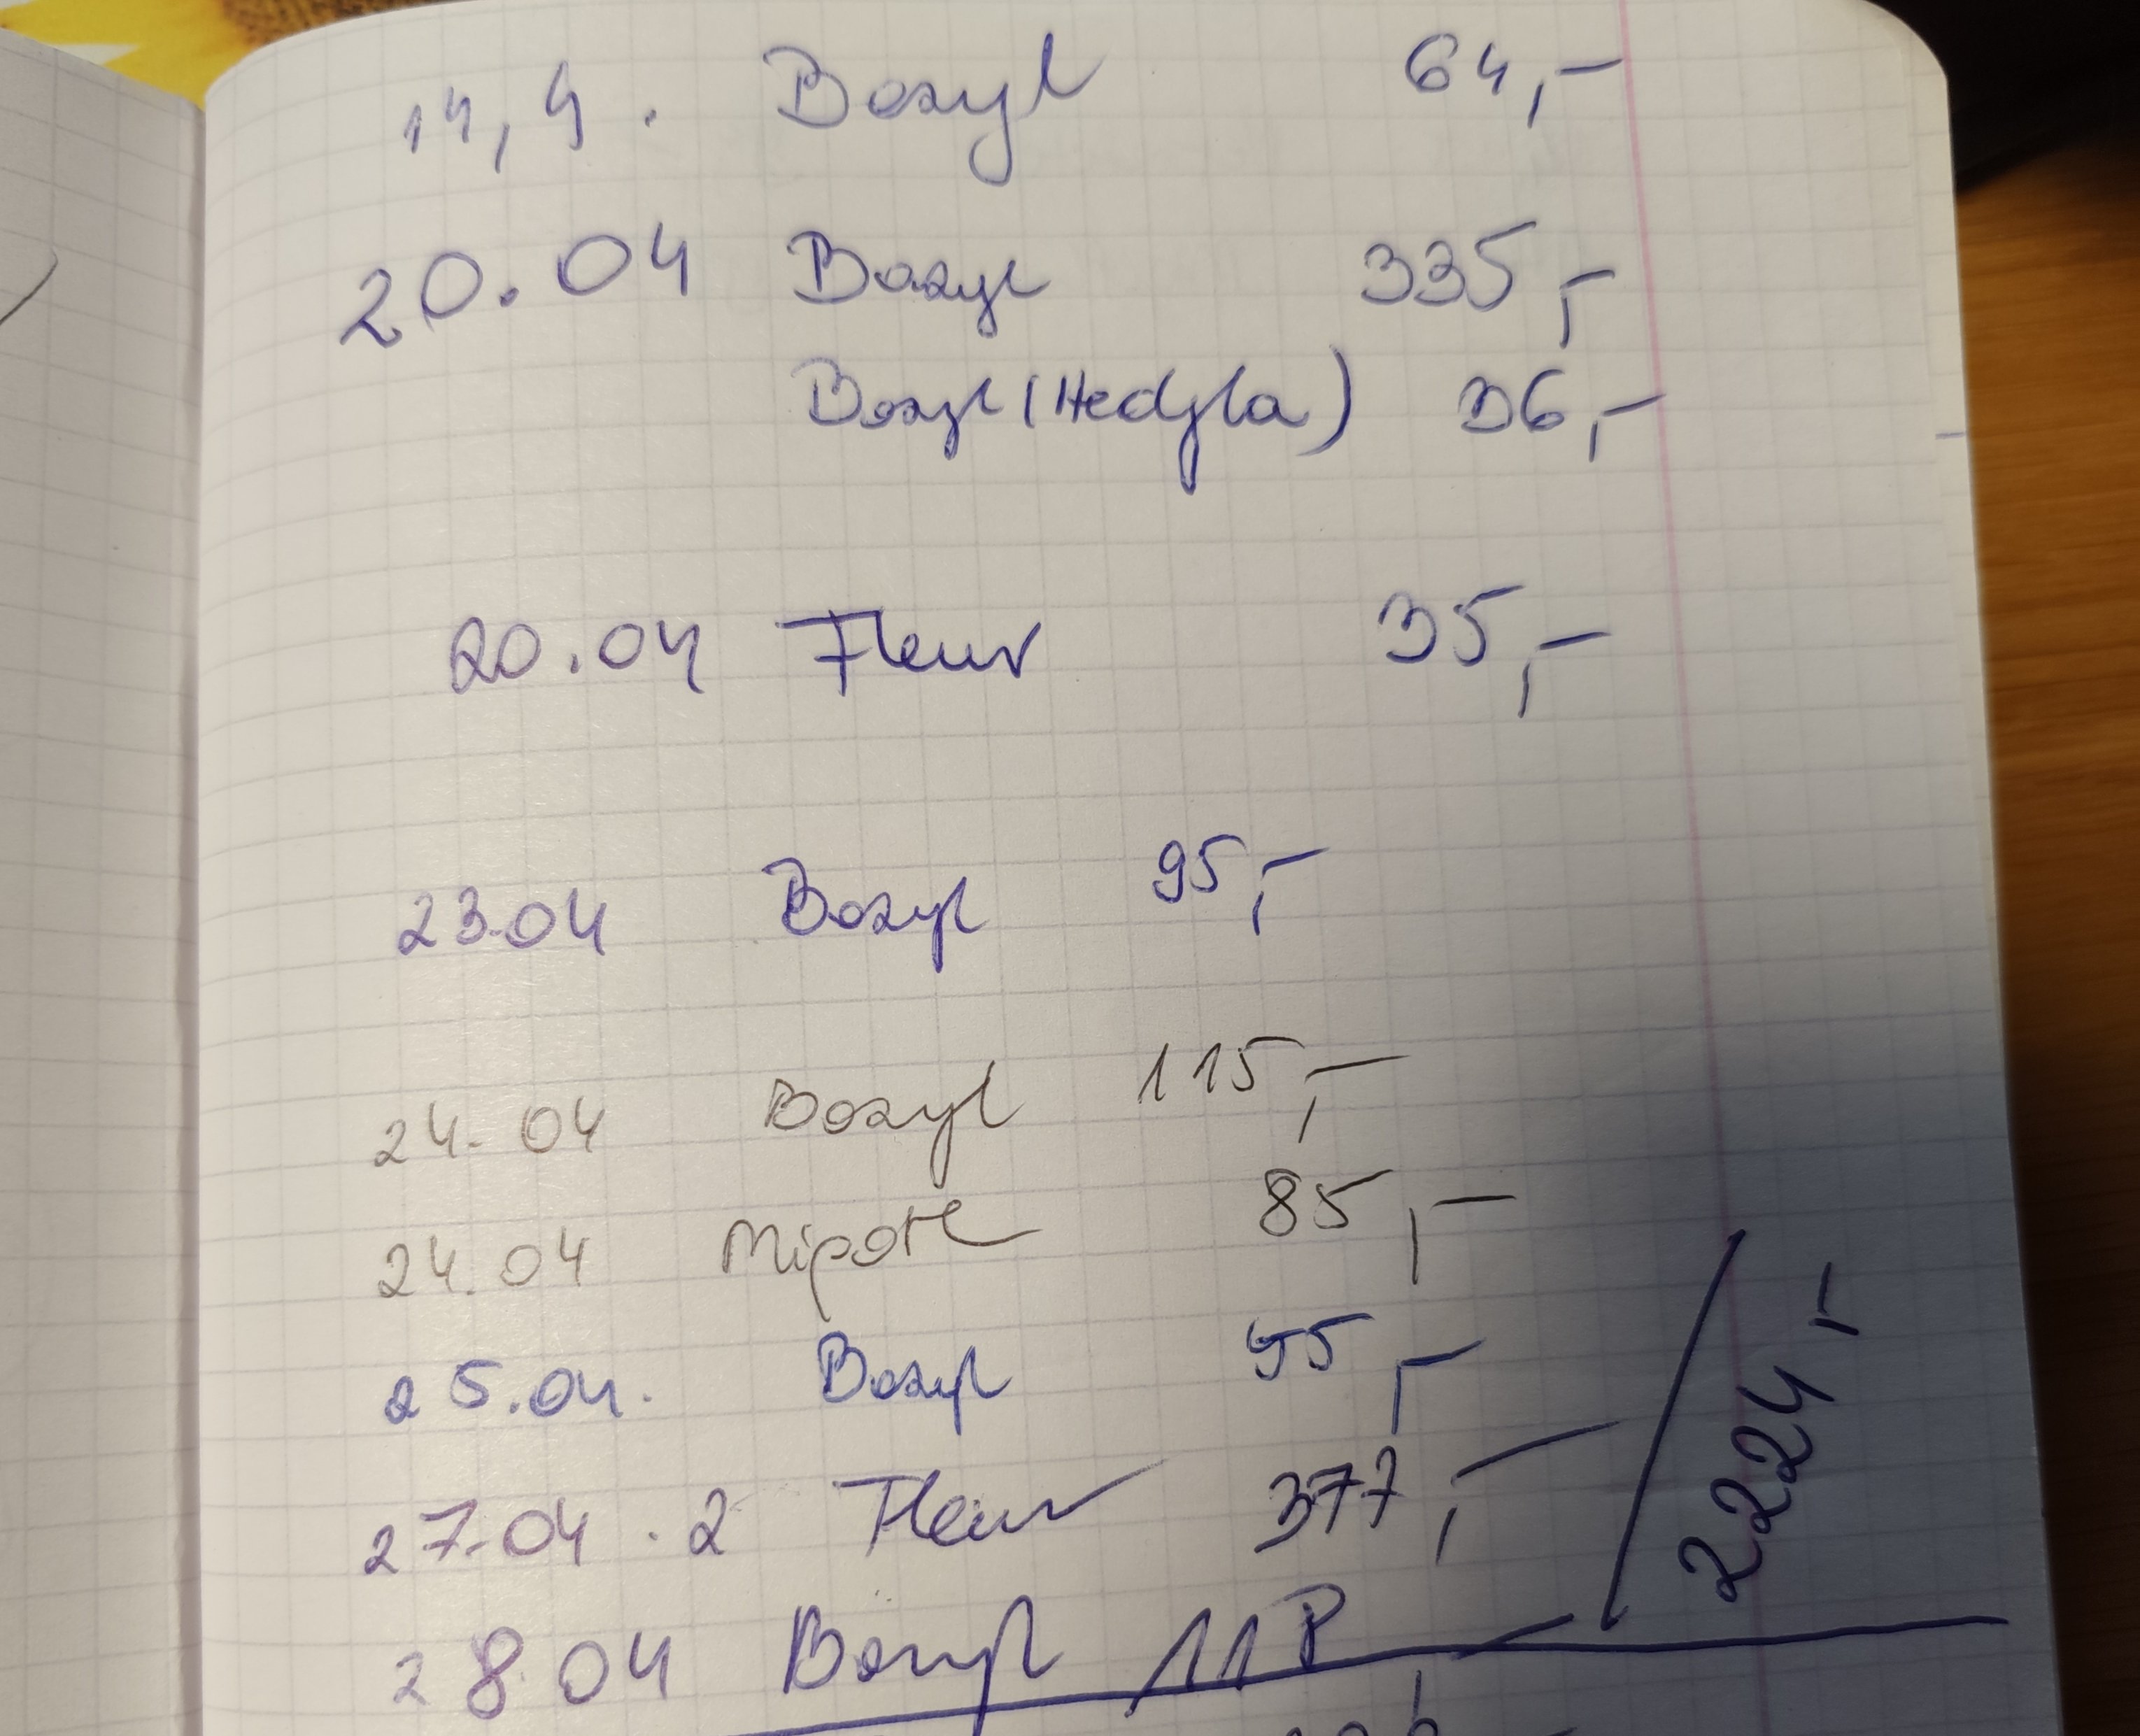 14,4. Bazyl 64,-
20.04 Bazyl 335,-
Bazyl (Hedyla) 36,-
20.04 Fleur 35,-
23.04 Bazyl 95,-
24.04 Bazyl 115,-
24.04 85,-
25.04. Bazyl 95,-
27.04.2 Fleur 377,-
28.04 Bazyl
2224,-